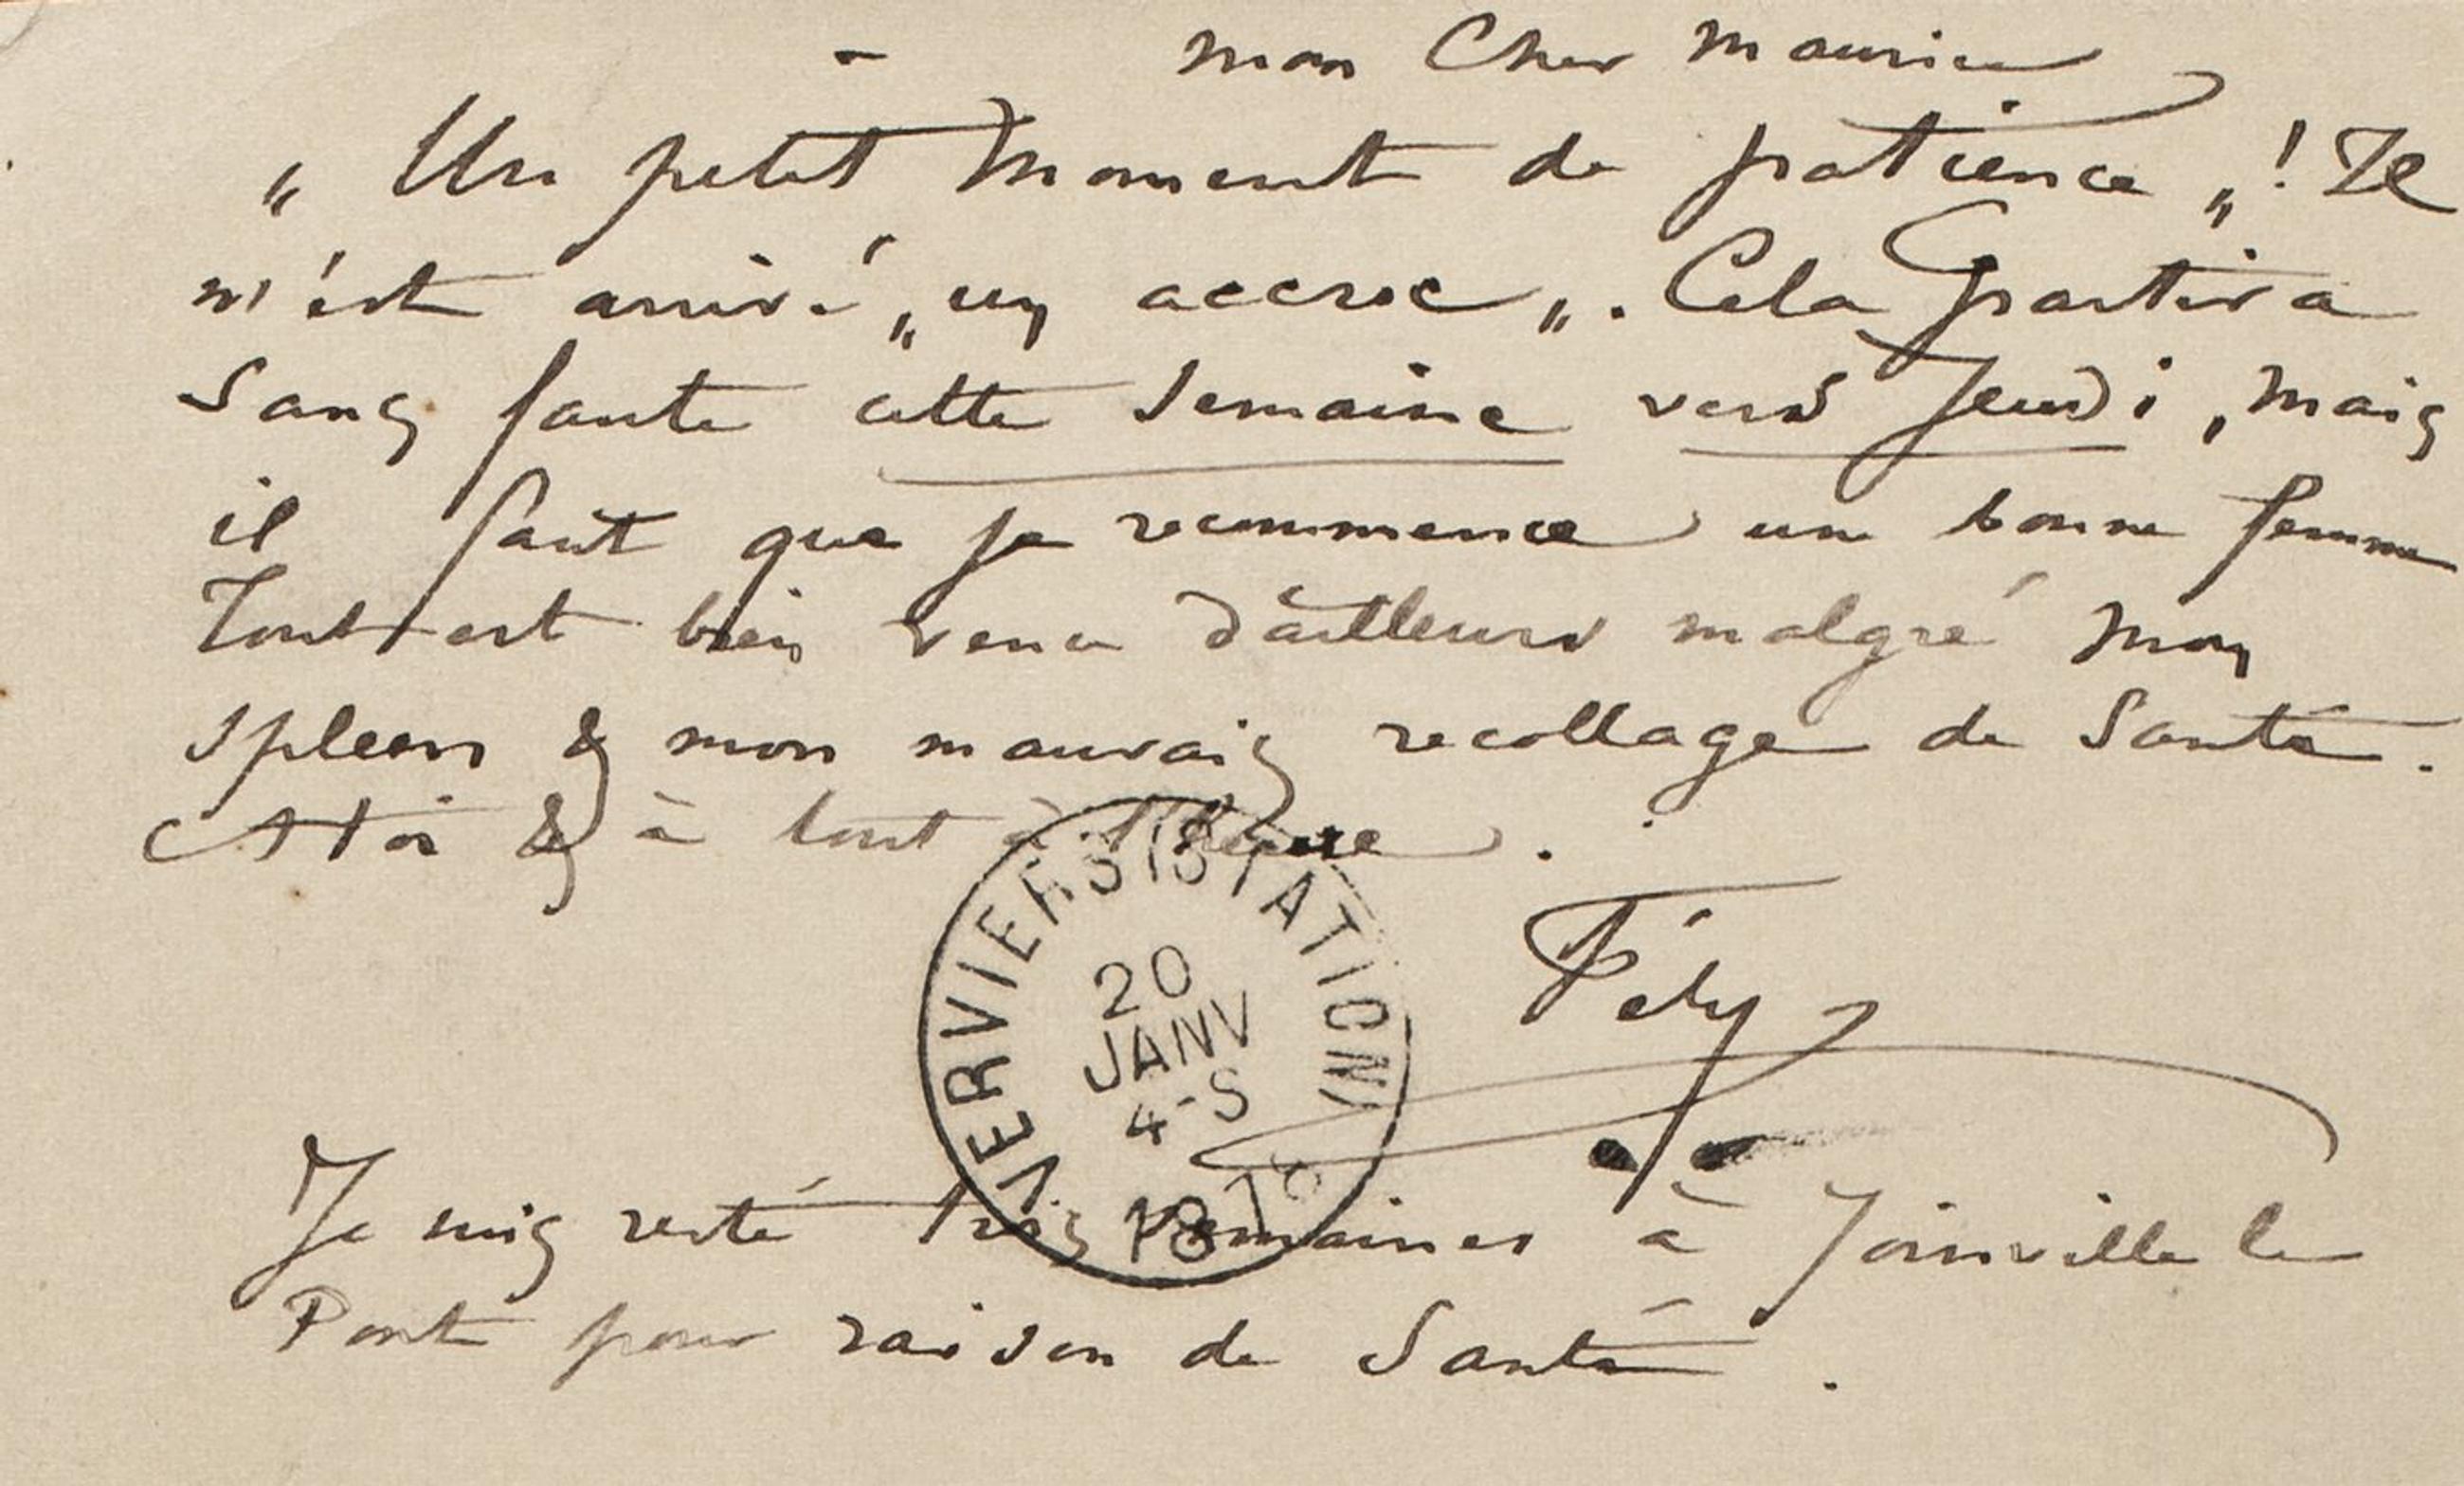 mon Cher Maurice
„ Un petit Moment de patience „! Il
m'est arrivé „ un accroc „. Cela partira
Sans faute cette Semaine vers Jeudi, Mais
il faut que je recommence une bonne femme
Tout est bien venu d'ailleurs malgré Mon
Spleen & mon mauvais recollage de Santé.
A toi & à tout à l'heure.
VERVIERS (STATION)
20
JANV
4-S
187
Fély
Je suis resté trois semaines à Joinville le
Pont pour raison de Santé.